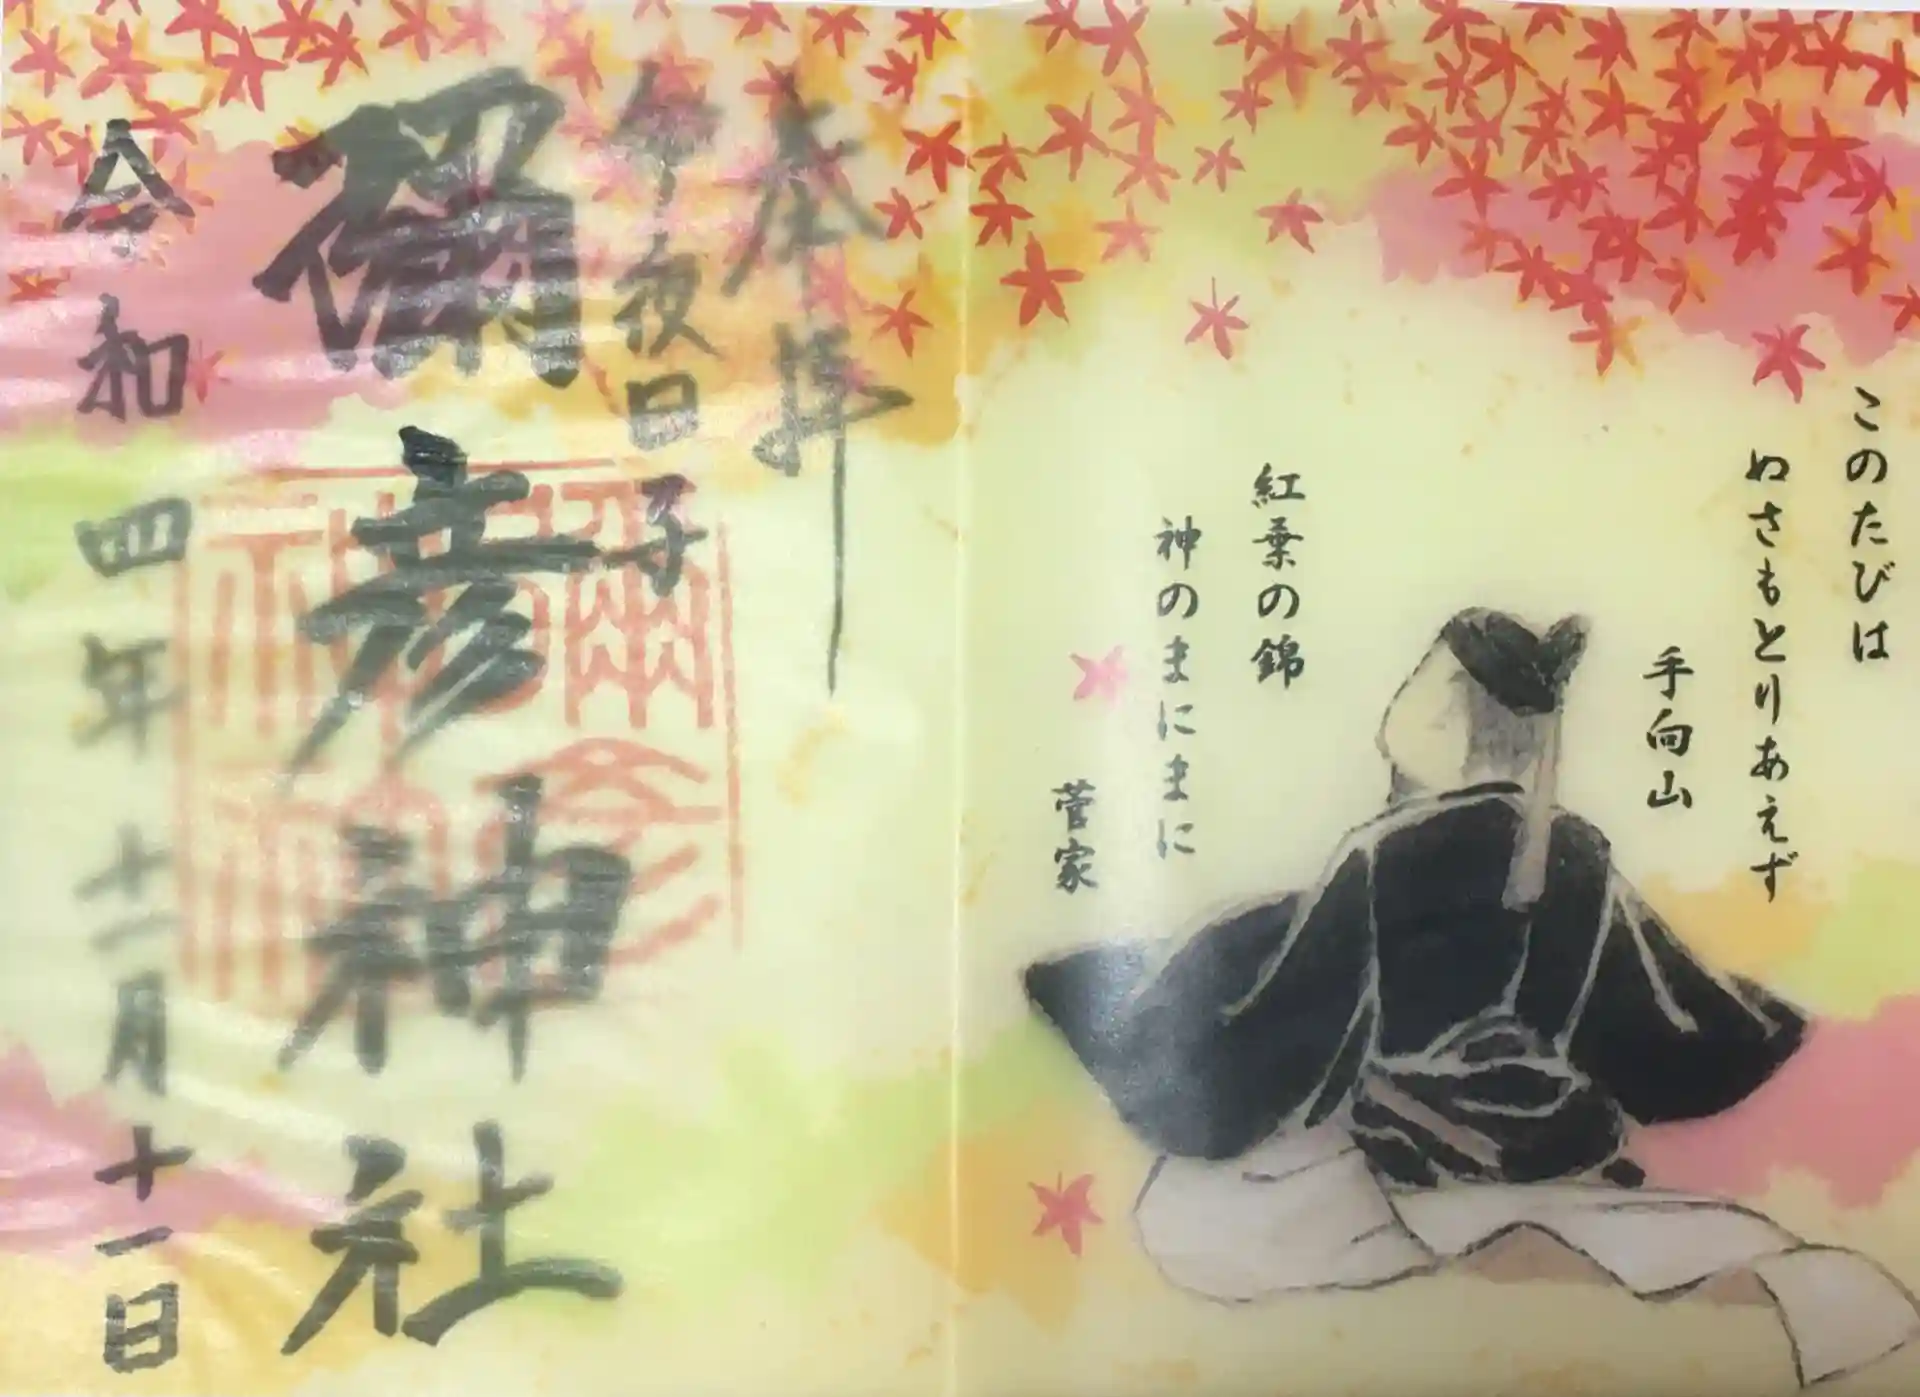 このたびは
ぬさもとりあえず
手向山
紅葉の錦
神のまにまに
菅家
奉拝
伊夜日子
彌彦神社
令和四年十二月十一日